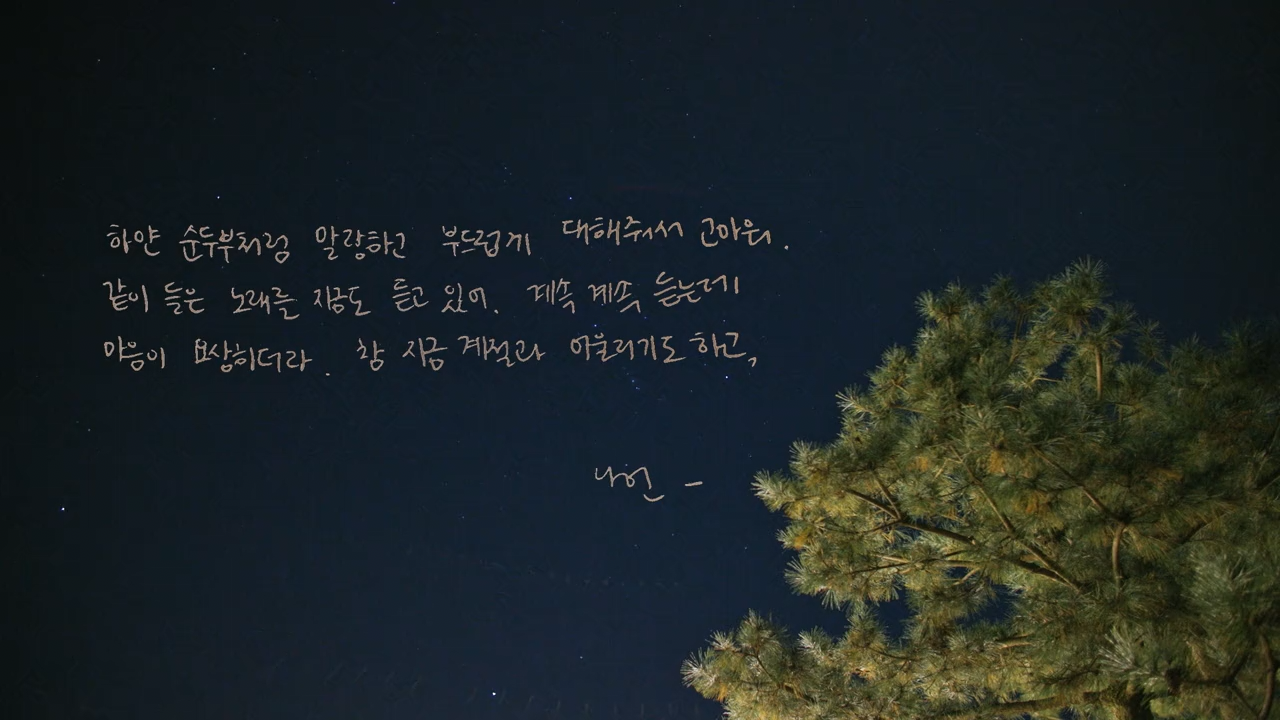 하얀 순두부처럼 말랑하고 부드럽게 대해줘서 고마워.
같이 들은 노래를 지금도 듣고 있어. 계속 계속 듣는데
마음이 몽상하더라. 참 지금 계절과 어울리기도 하고,
나언 -